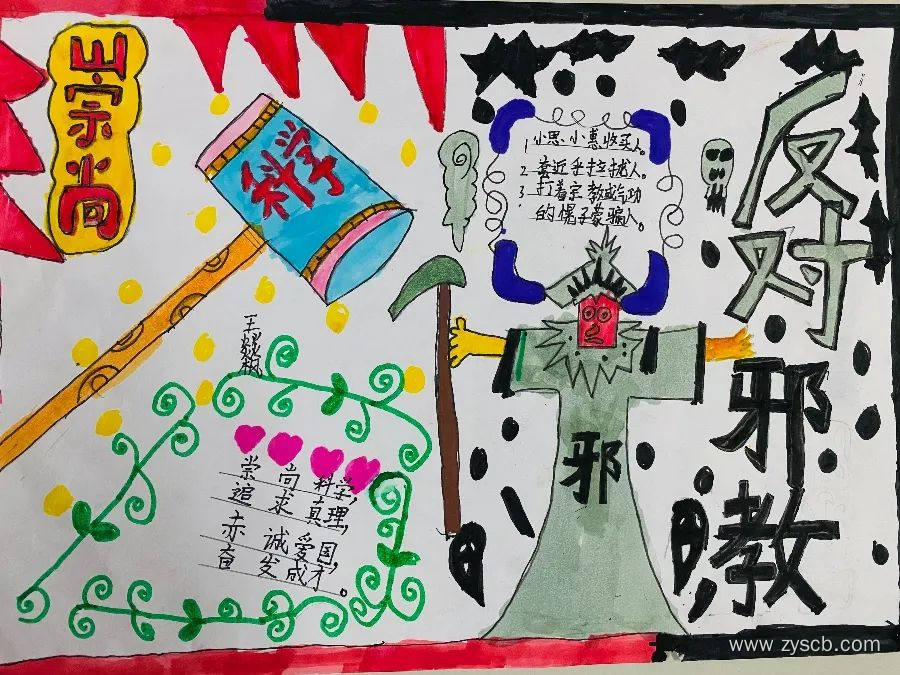 崇尚
科学
1.小恩小惠收买人。
2.套近乎拉拢人。
3.打着宗教或气功
的幌子蒙骗人。
反对
邪教
邪
王
崇尚科学,
追求真理,
赤诚爱国,
奋发成才。
www.zyscb.com